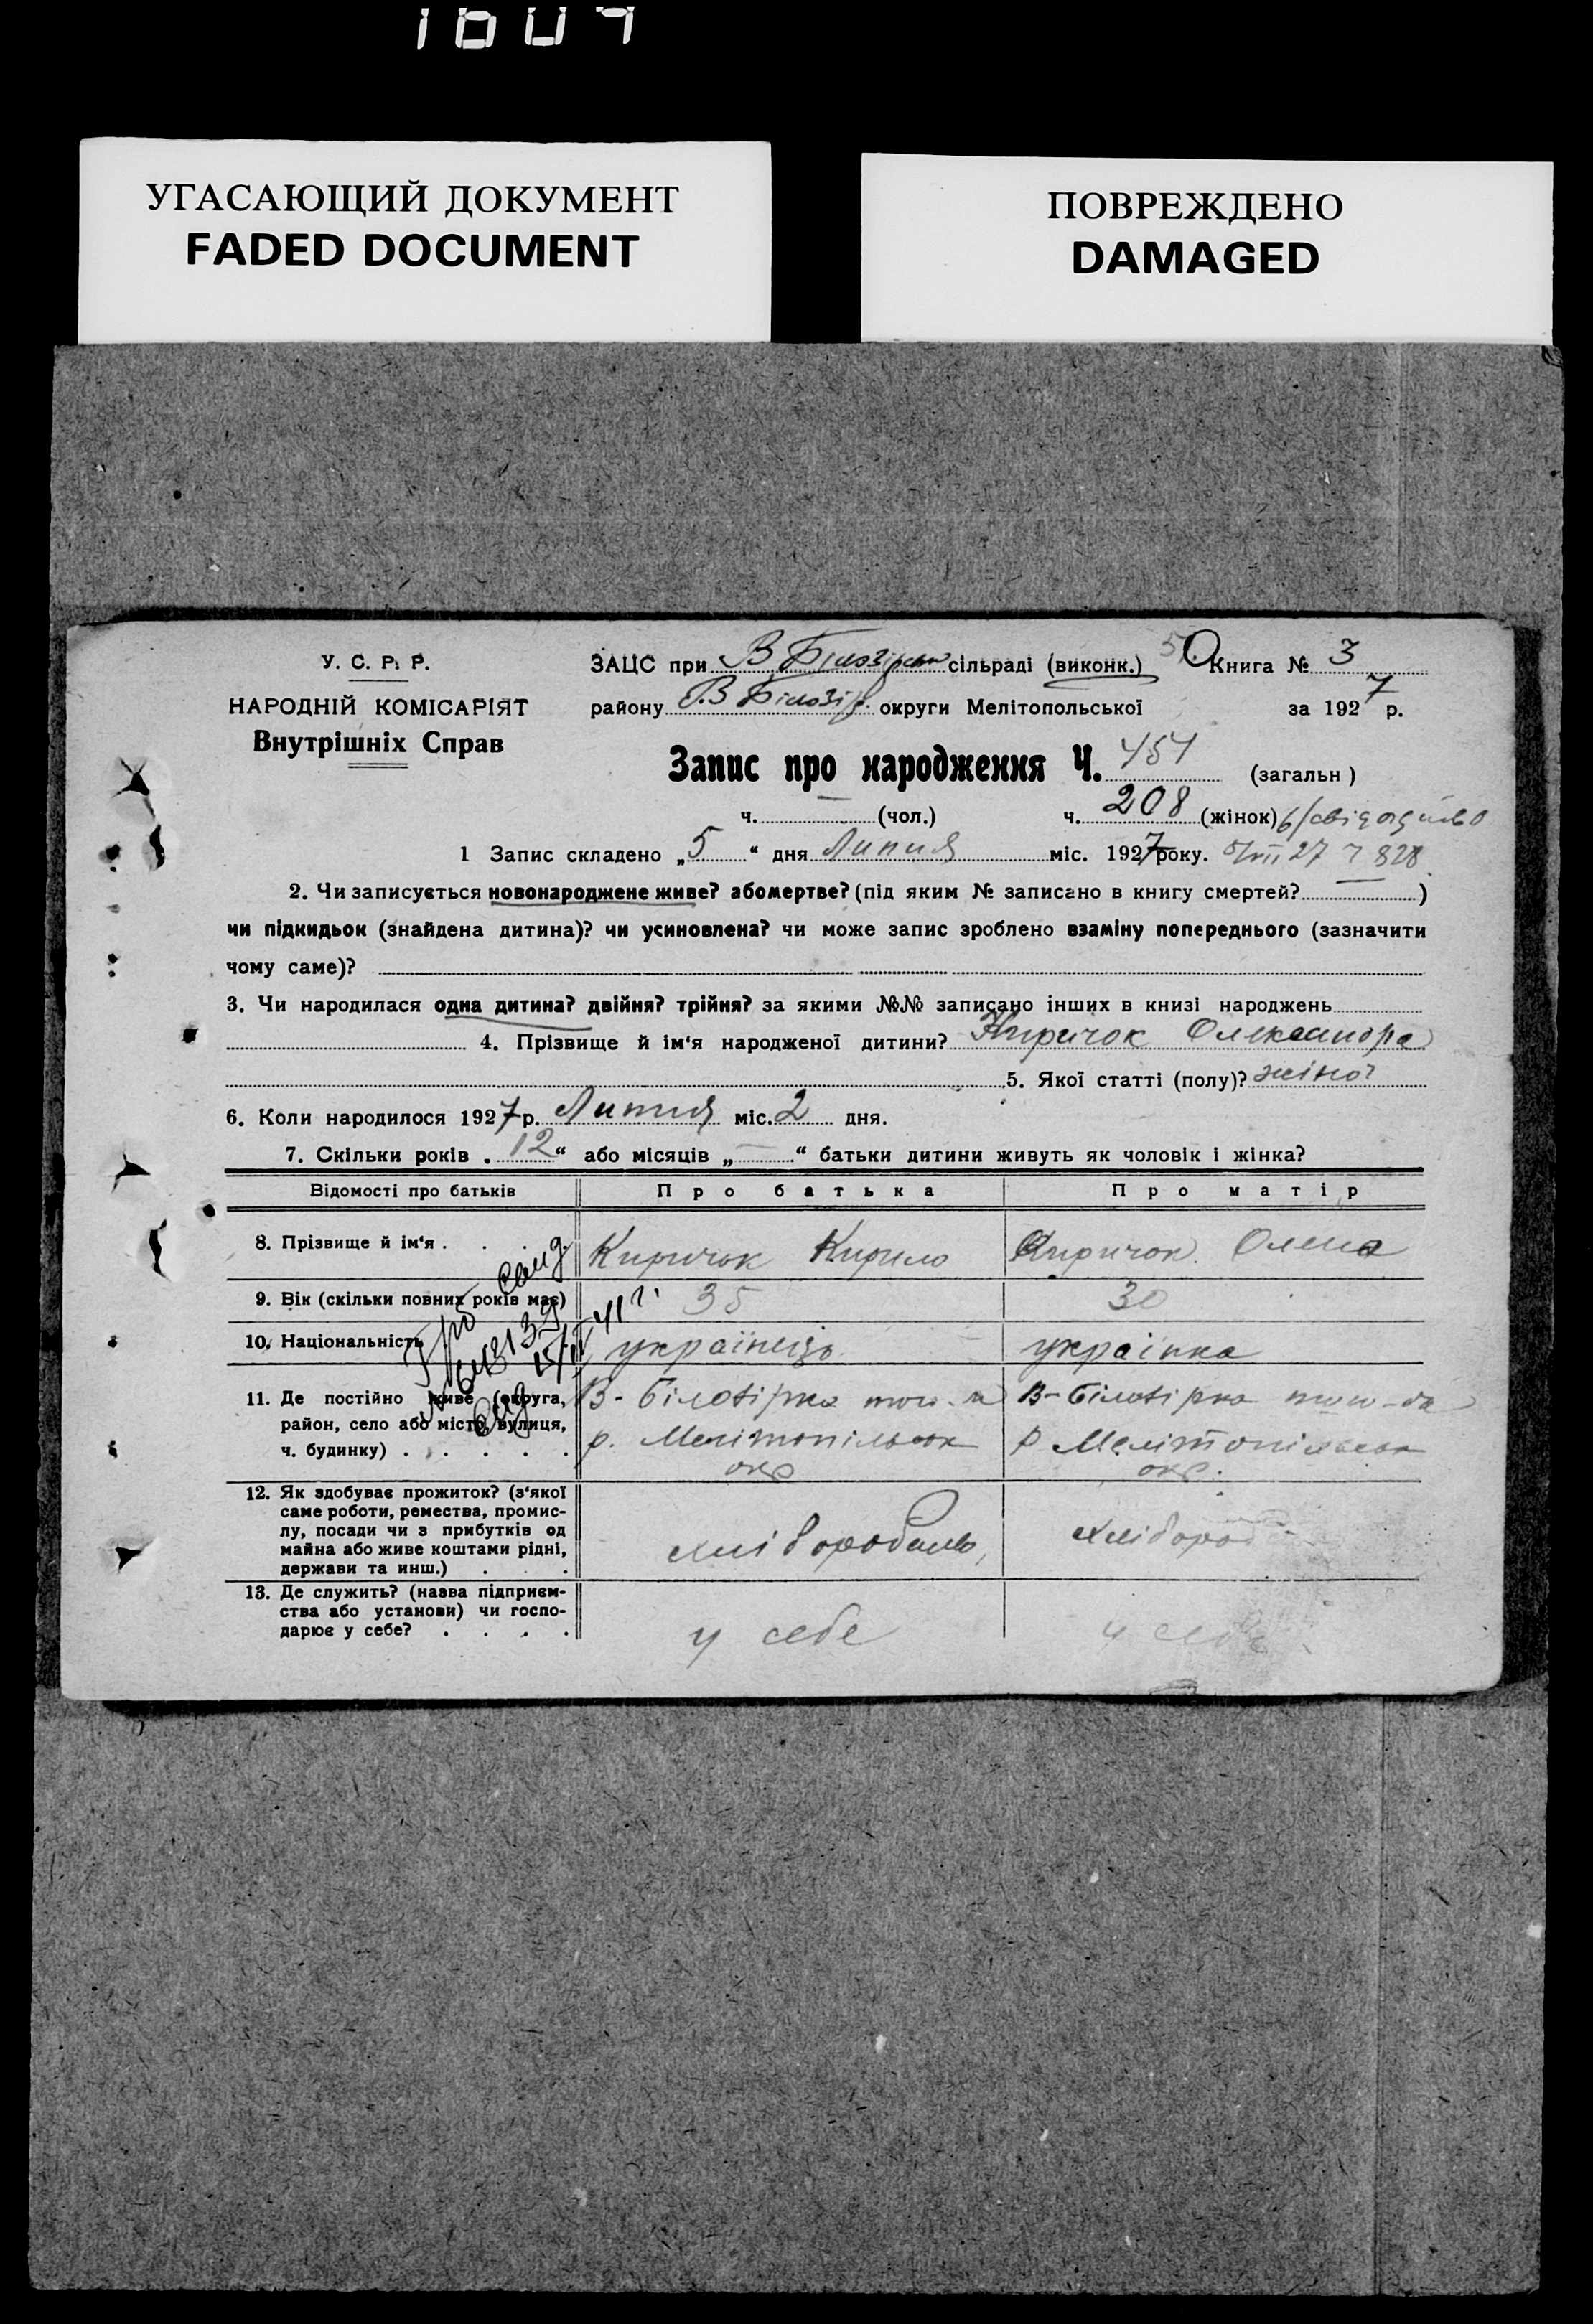 1604
УГАСАЮЩИЙ ДОКУМЕНТ
FADED DOCUMENT
ПОВРЕЖДЕНО
DAMAGED
У. С. Р. Р.
НАРОДНІЙ КОМІСАРІЯТ
Внутрішніх Справ
ЗАЦС при В Білозірськ сільраді (виконк.) 50 Книга № 3
району В Білозір. округи Мелітопольської за 1927 р.
Запис про народження Ч. 454 (загальн)
ч. — (чол.) ч. 208 (жінок)
1 Запис складено „5“ дня Липня міс. 1927 року. 5/VII 27 828
2. Чи записується новонароджене живе? або мертве? (під яким № записано в книгу смертей? )
чи підкидьок (знайдена дитина)? чи усиновлена? чи може запис зроблено взаміну попереднього (зазначити
чому саме)?
3. Чи народилася одна дитина? двійня? трійня? за якими №№ записано інших в книзі народжень
4. Прізвище й ім‘я народженої дитини? Киричок Олександра
5. Якої статті (полу)? жіної
6. Коли народилося 1927 р. Липня міс. 2 дня.
7. Скільки років „12“ або місяців „—“ батьки дитини живуть як чоловік і жінка?
Відомості про батьків Про батька Про матір
8. Прізвище й ім‘я . . . Киричок Кирило Киричок Олена
9. Вік (скільки повних років має) 35 30
10. Національність українець українка
11. Де постійно живе (округа,
район, село або місто, вулиця,
ч. будинку) . . . . .
В-Білозірка
р. Мелітопільськ
окр
В-Білозірка
р Мелітопільськ
окр.
12. Як здобуває прожиток? (з‘якої
саме роботи, ремества, промис-
лу, посади чи з прибутків од
майна або живе коштами рідні,
держави та инш.) . .
хліборобить
хлібороб
13. Де служить? (назва підприєм-
ства або установи) чи госпо-
дарює у себе? . . . .
у себе
у себе